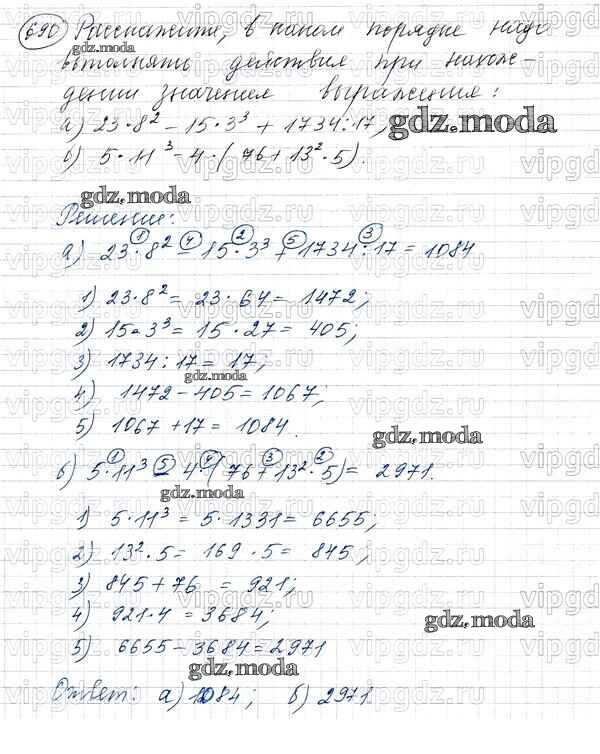 690 Расскажите, в каком порядке надо
gdz.moda
выполнять действия при нахож-
дении значения выражения:
а) 23·8² - 15·3³ + 1734:17, gdz.moda
б) 5·11³ - 4·(76+13²·5).
gdz.moda
Решение:
а) 23·8² - 15·3³ + 1734:17 = 1084
1) 23·8² = 23·64 = 1472;
2) 15·3³ = 15·27 = 405;
3) 1734:17 = 17;
gdz.moda
4) 1472-405=1067;
5) 1067+17=1084.
gdz.moda
б) 5·11³ - 4·(76+13²·5) = 2971.
gdz.moda
1) 5·11³ = 5·1331 = 6655;
2) 13²·5 = 169·5 = 845;
3) 845+76 = 921;
4) 921·4 = 3684;
gdz.moda
5) 6655-3684=2971
gdz.moda
Ответ: а) 1084; б) 2971
vipgdz.ru